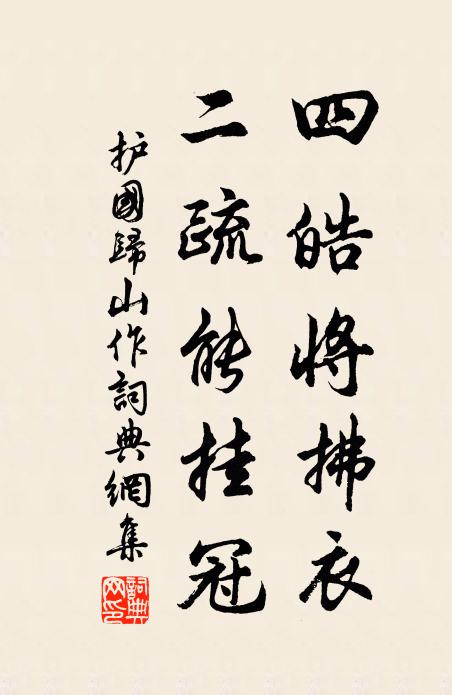 四皓将拂衣
二疏能挂冠
护國歸山作詞典網集
詞典網印